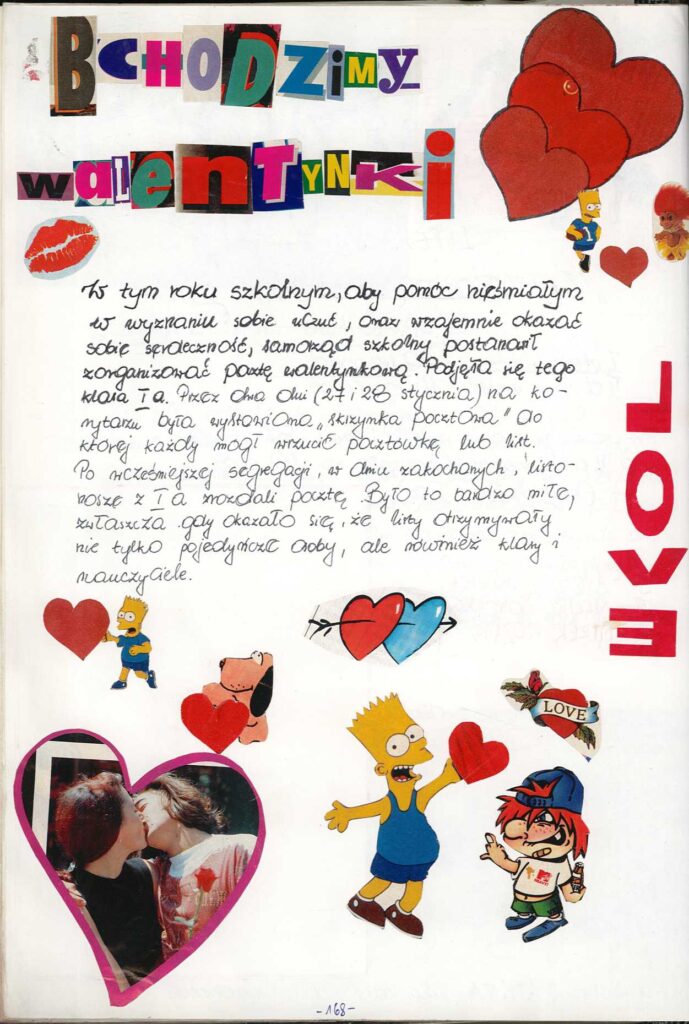 BCHODZIMY
walenTYNKi
W tym roku szkolnym, aby pomóc nieśmiałym
w wyznaniu sobie uczuć, oraz wzajemnie okazać
sobie serdeczność, samorząd szkolny postanowił
zorganizować pocztę walentynkową. Podjęła się tego
klasa I a. Przez dwa dni (27 i 28 stycznia) na ko-
rytarzu była wystawiona „skrzynka pocztowa" do
której każdy mógł wrzucić pocztówkę lub list.
Po wcześniejszej segregacji, w dniu zakochanych, listo-
nosze z I a rozdali pocztę. Było to bardzo miłe,
zwłaszcza gdy okazało się, że listy otrzymywały
nie tylko pojedyńcze osoby, ale również klasy i
nauczyciele.
LOVE
LOVE
1
-168-